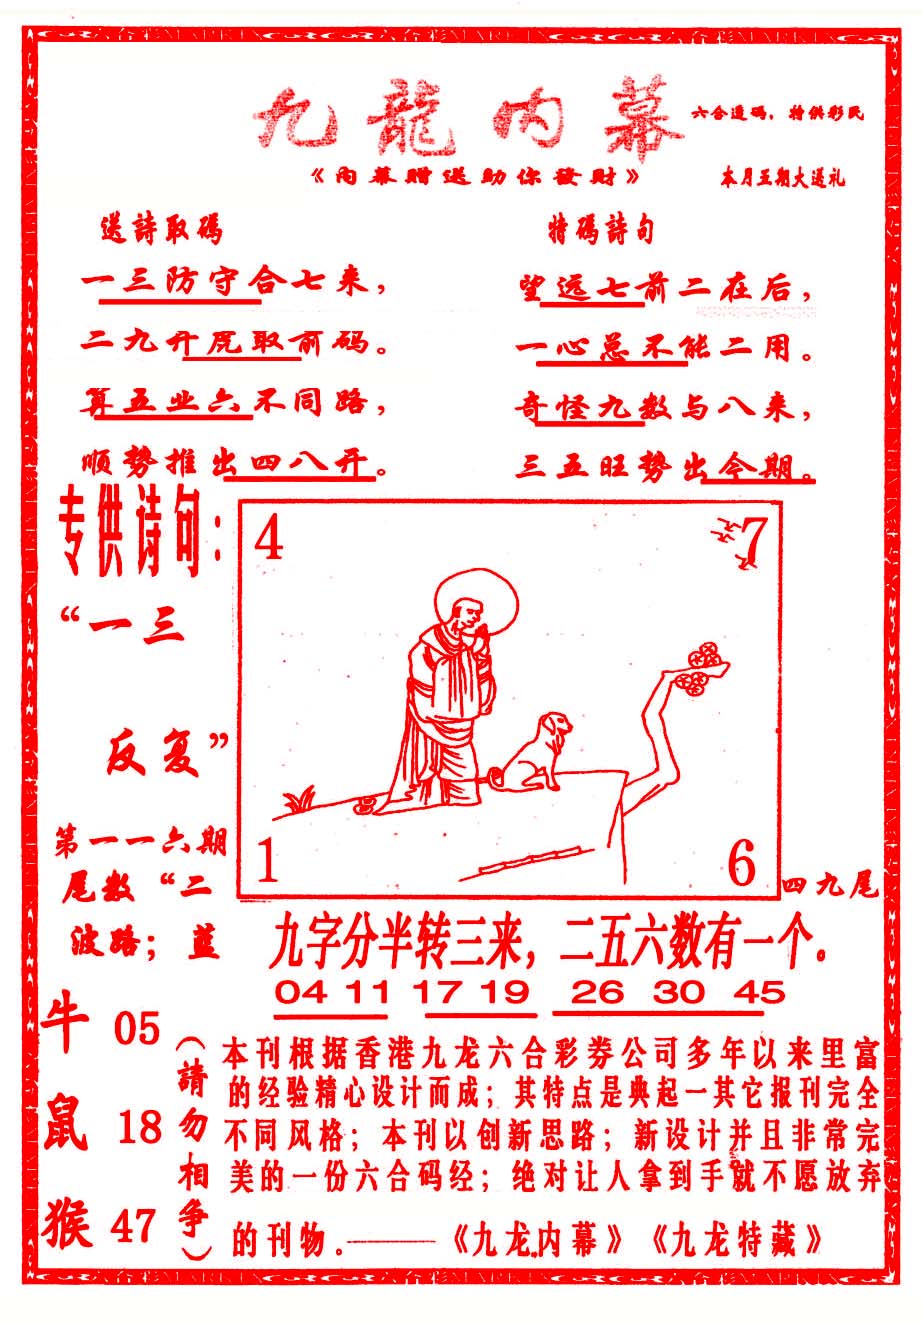 九龍内幕
六合透码，特供彩民
《内幕赠送助你發財》
本月五期大送礼
送詩取碼
一三防守合七来，
二九开尾取前码。
算五业六不同路，
顺势推出四八开。
特碼詩句
望远七前二在后，
一心总不能二用。
奇怪九数与八来，
三五旺势出今期。
专供诗句：
“一三
反复”
4
7
1
6
第一一六期
尾数“二
四九尾
波路；蓝
九字分半转三来，二五六数有一个。
04 11 17 19 26 30 45
牛 05
鼠 18
猴 47
（請勿相争）
本刊根据香港九龙六合彩券公司多年以来里富
的经验精心设计而成；其特点是典起一其它报刊完全
不同风格；本刊以创新思路；新设计并且非常完
美的一份六合码经；绝对让人拿到手就不愿放弃
的刊物。———《九龙内幕》《九龙特藏》